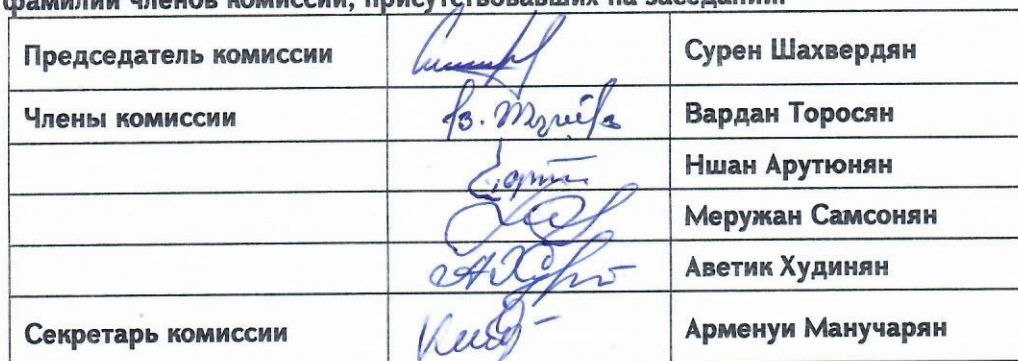 фамилии членов комиссии, присутствовавших на заседании:
Председатель комиссии Сурен Шахвердян
Члены комиссии Вардан Торосян
Ншан Арутюнян
Меружан Самсонян
Аветик Худинян
Секретарь комиссии Арменуи Манучарян